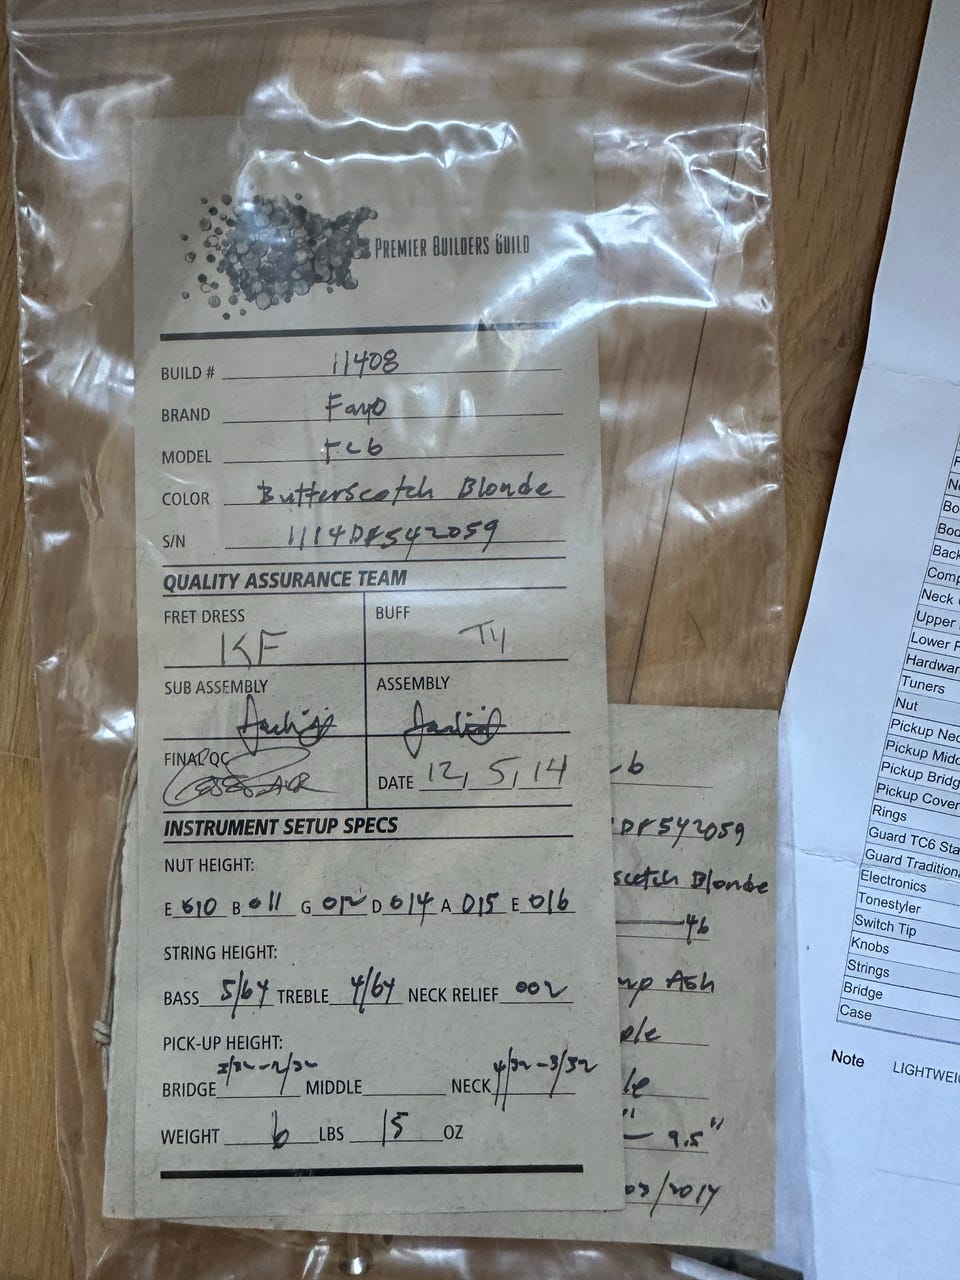 PREMIER BUILDERS GUILD
BUILD # 11408
BRAND Fano
MODEL TC6
COLOR Butterscotch Blonde
S/N 1114DF542059
QUALITY ASSURANCE TEAM
FRET DRESS BUFF
KF TY
SUB ASSEMBLY ASSEMBLY
FINAL QC
DATE 12, 5, 14
INSTRUMENT SETUP SPECS
NUT HEIGHT:
E 010 B 011 G 012 D 014 A 015 E 016
STRING HEIGHT:
BASS 5/64 TREBLE 4/64 NECK RELIEF 002
PICK-UP HEIGHT:
BRIDGE 3/32-2/32 MIDDLE NECK 4/32-3/32
WEIGHT 6 LBS 15 OZ
DF542059
scotch Blonde
Ash
9.5"
/2014
Hardwar
Tuners
Nut
Pickup Nec
Pickup Midd
Pickup Bridg
Pickup Cover
Rings
Guard TC6 Sta
Guard Traditiona
Electronics
Tonestyler
Switch Tip
Knobs
Strings
Bridge
Case
Note LIGHTWEI